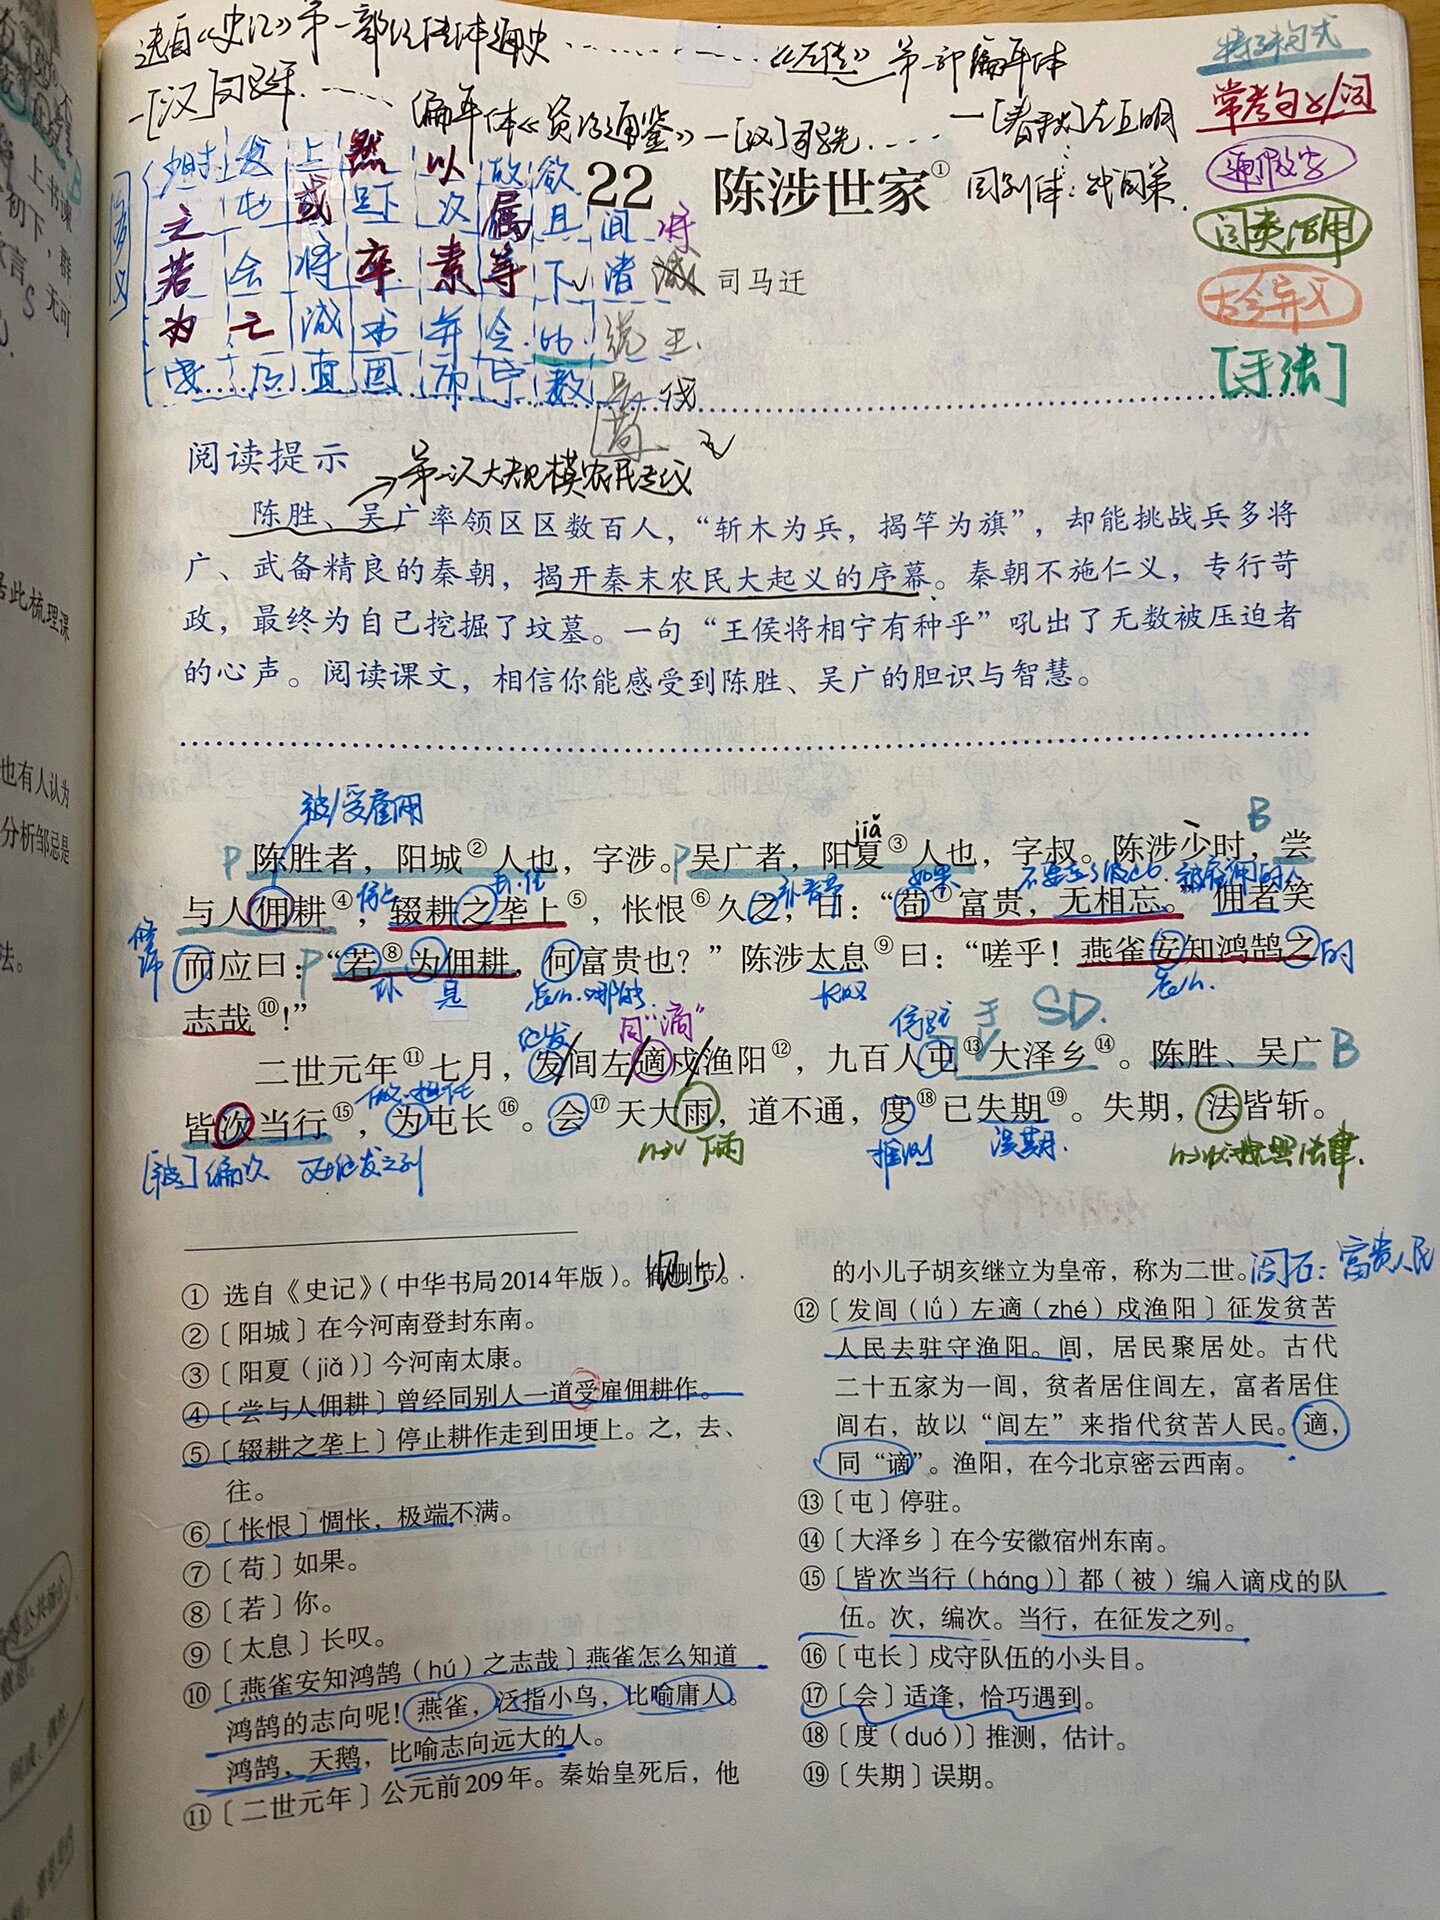 选自《史记》第一部纪传体通史……《左传》第一部编年体
[汉]司马迁……编年体《资治通鉴》一[汉]司马光……一[春秋]左丘明
国别体：战国策
特殊句式
常考句子/词
通假字
词类活用
古今异义
[手法]
多义
少时 发 上 然 以 故 欲
之 屯 或 足下 次 属 且 间 将
若 会 将 卒 素 等 下 诸
为 亡 减 书 并 令 比 说 王
度 应 直 国 而 守 数
22 陈涉世家①
司马迁
阅读提示
第一次大规模农民起义
陈胜、吴广率领区区数百人，“斩木为兵，揭竿为旗”，却能挑战兵多将
广、武备精良的秦朝，揭开秦末农民大起义的序幕。秦朝不施仁义，专行苛
政，最终为自己挖掘了坟墓。一句“王侯将相宁有种乎”吼出了无数被压迫者
的心声。阅读课文，相信你能感受到陈胜、吴广的胆识与智慧。
被/受雇佣
jiǎ
B
P陈胜者，阳城②人也，字涉。P吴广者，阳夏③人也，字叔。陈涉少时，尝
停止 去、往 补音节 如果 被雇佣的人
与人佣耕④，辍耕之垄上⑤，怅恨⑥久之，曰：“苟⑦富贵，无相忘。”佣者笑
修饰
而应曰：P“若⑧为佣耕，何富贵也？”陈涉太息⑨曰：“嗟乎！燕雀安知鸿鹄之的
你 是 怎么、哪能 长叹 怎么
志哉⑩！”
征发 同“谪” 停驻 于 SD.
二世元年⑪七月，发/闾左/適戍/渔阳⑫，九百人屯⑬大泽乡⑭。陈胜、吴广B
做、担任
皆次当行⑮，为屯长⑯。会⑰天大雨，道不通，度⑱已失期⑲。失期，法皆斩。
[被]编次 在征发之列 下雨 推测 误期.
① 选自《史记》（中华书局2014年版）。有删节。
②〔阳城〕在今河南登封东南。
③〔阳夏（jiǎ）〕今河南太康。
④〔尝与人佣耕〕曾经同别人一道受雇佣耕作。
⑤〔辍耕之垄上〕停止耕作走到田埂上。之，去、
往。
⑥〔怅恨〕惆怅，极端不满。
⑦〔苟〕如果。
⑧〔若〕你。
⑨〔太息〕长叹。
⑩〔燕雀安知鸿鹄（hú）之志哉〕燕雀怎么知道
鸿鹄的志向呢！燕雀，泛指小鸟，比喻庸人。
鸿鹄，天鹅，比喻志向远大的人。
⑪〔二世元年〕公元前209年。秦始皇死后，他
的小儿子胡亥继立为皇帝，称为二世。闾右：富贵人民
⑫〔发闾（lǘ）左適（zhé）戍渔阳〕征发贫苦
人民去驻守渔阳。闾，居民聚居处。古代
二十五家为一闾，贫者居住闾左，富者居住
闾右，故以“闾左”来指代贫苦人民。適，
同“谪”。渔阳，在今北京密云西南。
⑬〔屯〕停驻。
⑭〔大泽乡〕在今安徽宿州东南。
⑮〔皆次当行（háng）〕都（被）编入谪戍的队
伍。次，编次。当行，在征发之列。
⑯〔屯长〕戍守队伍的小头目。
⑰〔会〕适逢，恰巧遇到。
⑱〔度（duó）〕推测，估计。
⑲〔失期〕误期。